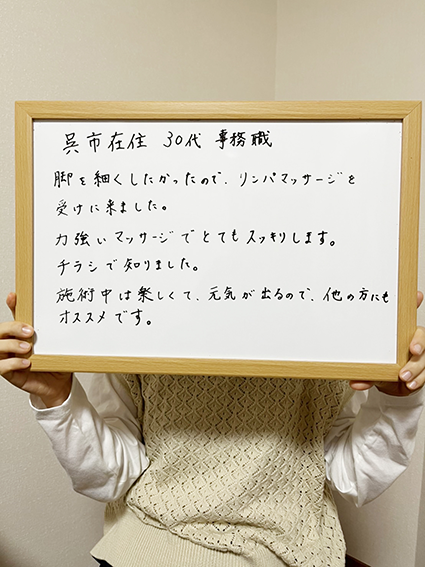 呉市在住 30代 事務職
脚を細くしたかったので、リンパマッサージを
受けに来ました。
力強いマッサージでとてもスッキリします。
チラシで知りました。
施術中は楽しくて、元気が出るので、他の方にも
オススメです。